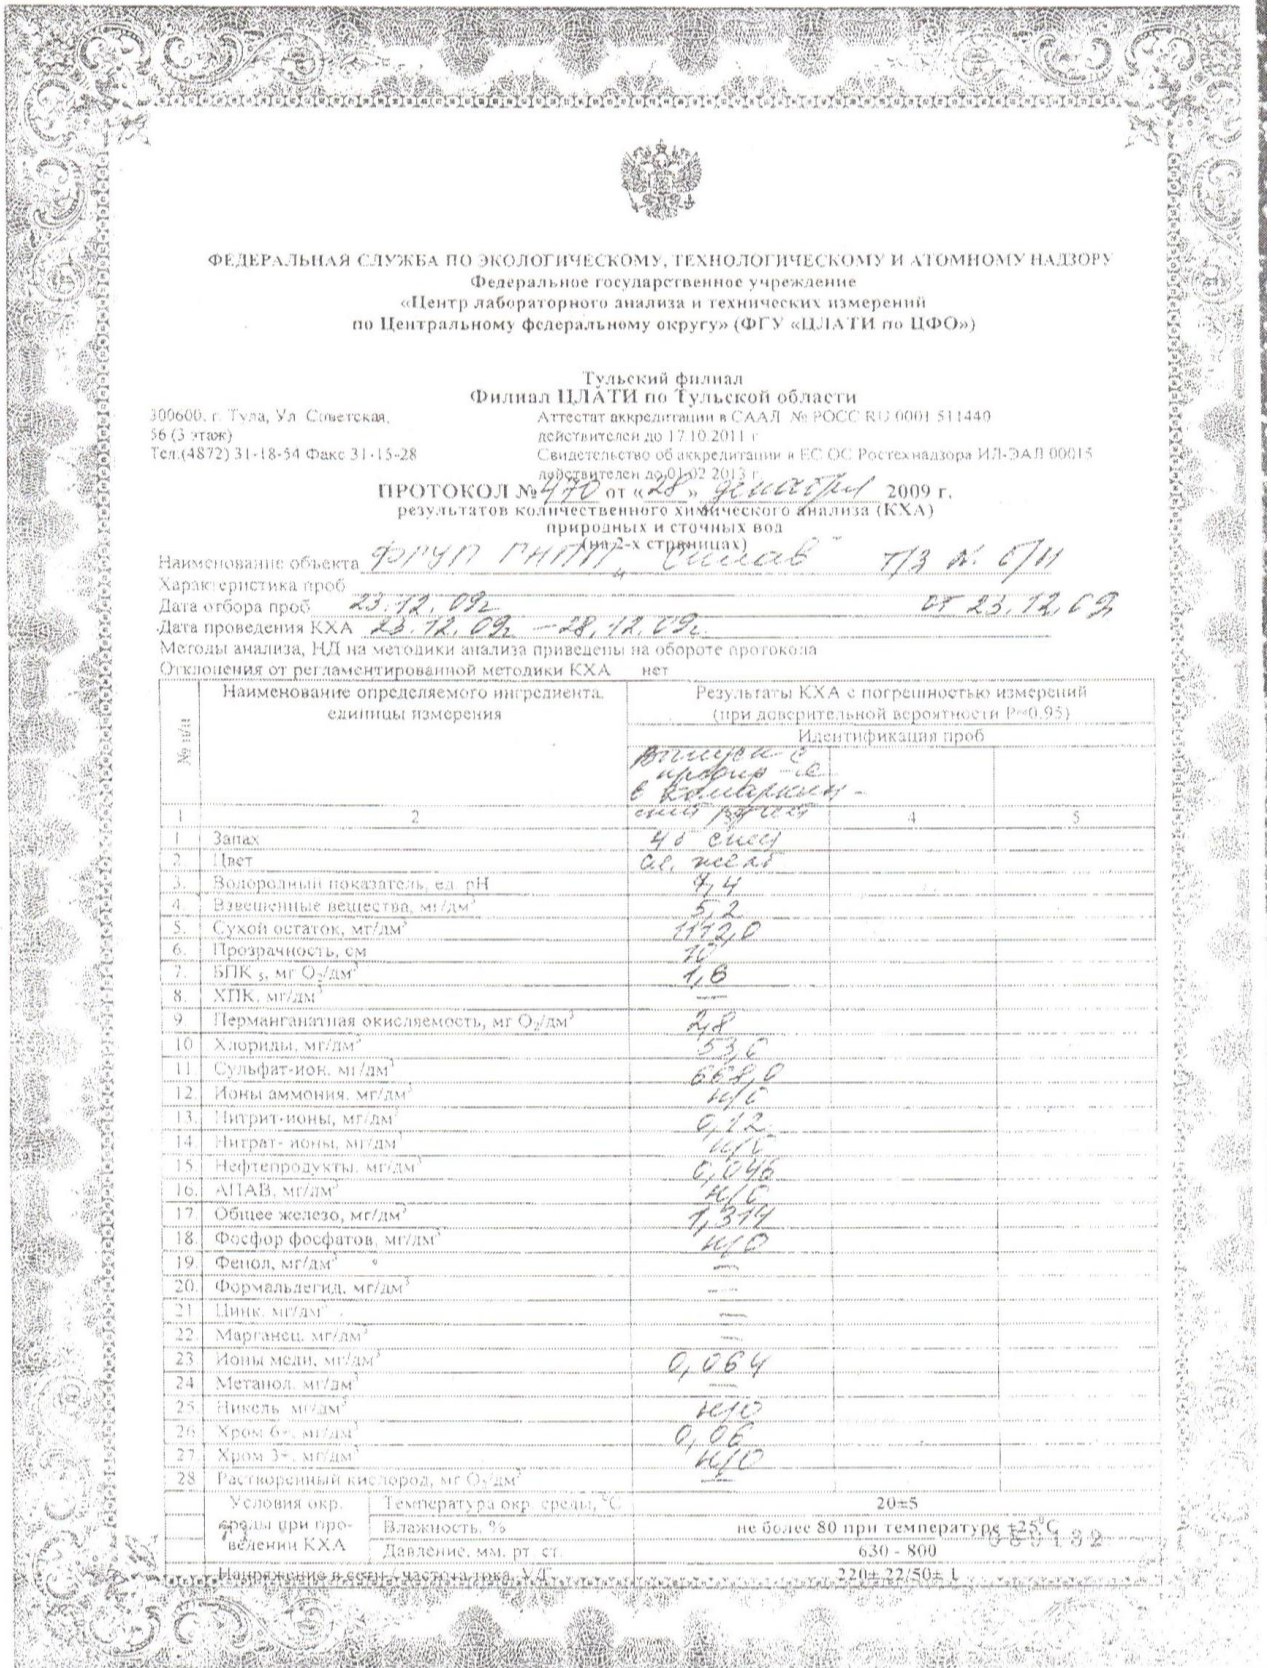 ФЕДЕРАЛЬНАЯ СЛУЖБА ПО ЭКОЛОГИЧЕСКОМУ, ТЕХНОЛОГИЧЕСКОМУ И АТОМНОМУ НАДЗОРУ
Федеральное государственное учреждение
«Центр лабораторного анализа и технических измерений
по Центральному федеральному округу» (ФГУ «ЦЛАТИ по ЦФО»)
Тульский филиал
Филиал ЦЛАТИ по Тульской области
300600, г. Тула, Ул. Советская, Аттестат аккредитации в СААЛ № РОСС RU 0001 511440
56 (3 этаж) действителен до 17.10.2011 г
Тел.(4872) 31-18-54 Факс 31-15-28 Свидетельство об аккредитации в ЕС ОС Ростехнадзора ИЛ-ЭАЛ 00015
действителен до 01.02.2013 г
ПРОТОКОЛ № 470 от «28» декабря 2009 г.
результатов количественного химического анализа (КХА)
природных и сточных вод
(на 2-х страницах)
Наименование объекта ФГУП ГНПП "Сплав" Т/З № б/н
Характеристика проб
Дата отбора проб 23.12.09г от 23.12.09
Дата проведения КХА 23.12.09г – 28.12.09г.
Методы анализа, НД на методики анализа приведены на обороте протокола
Отклонения от регламентированной методики КХА нет
№ п/п Наименование определяемого ингредиента, единицы измерения Результаты КХА с погрешностью измерений
(при доверительной вероятности Р=0.95)
Идентификация проб
Выпуск с
в
1 2 4 5
1 Запах
2. Цвет
3. Водородный показатель, ед. рН 7,4
4. Взвешенные вещества, мг/дм³ 5,2
5. Сухой остаток, мг/дм³ 1112,0
6. Прозрачность, см 10
7. БПК 5, мг О2/дм³ 1,6
8. ХПК, мг/дм³ —
9 Перманганатная окисляемость, мг О2/дм³ 2,8
10 Хлориды, мг/дм³ 53,6
11. Сульфат-ион, мг/дм³ 668,0
12. Ионы аммония, мг/дм³ н/о
13. Нитрит-ионы, мг/дм³ 0,12
14. Нитрат- ионы, мг/дм³ н/о
15. Нефтепродукты, мг/дм³ 0,046
16. АПАВ, мг/дм³ н/о
17. Общее железо, мг/дм³ 1,314
18. Фосфор фосфатов, мг/дм³ н/о
19. Фенол, мг/дм³ —
20. Формальдегид, мг/дм³ —
21. Цинк, мг/дм³ —
22. Марганец, мг/дм³ —
23 Ионы меди, мг/дм³ 0,064
24 Метанол, мг/дм³ —
25. Никель мг/дм³ н/о
26. Хром 6+, мг/дм³ 0,06
27. Хром 3+, мг/дм³ н/о
28 Растворенный кислород, мг О2/дм³ —
Условия окр. Температура окр. среды, °С 20±5
среды при про- Влажность, % не более 80 при температуре +25°С
ведении КХА Давление, мм. рт. ст. 630 - 800
Напряжение в сети / частота тока, V/Г 220± 22/50± 1